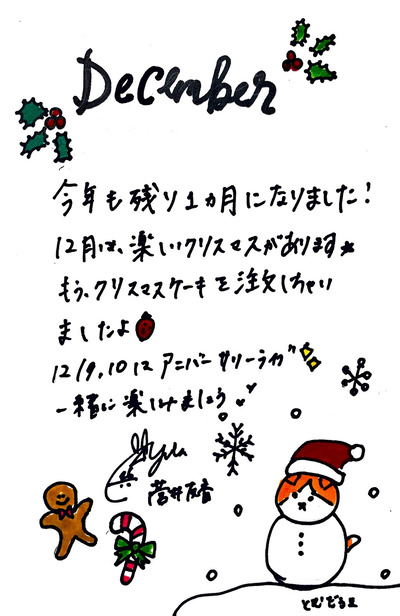 December
今年も残り1ヵ月になりました!
12月は、楽しいクリスマスがあります★
もう、クリスマスケーキを注文しちゃい
ましたよ
12/9,10は アニバーサリーライブ
一緒に楽しみましょう
菅井友香